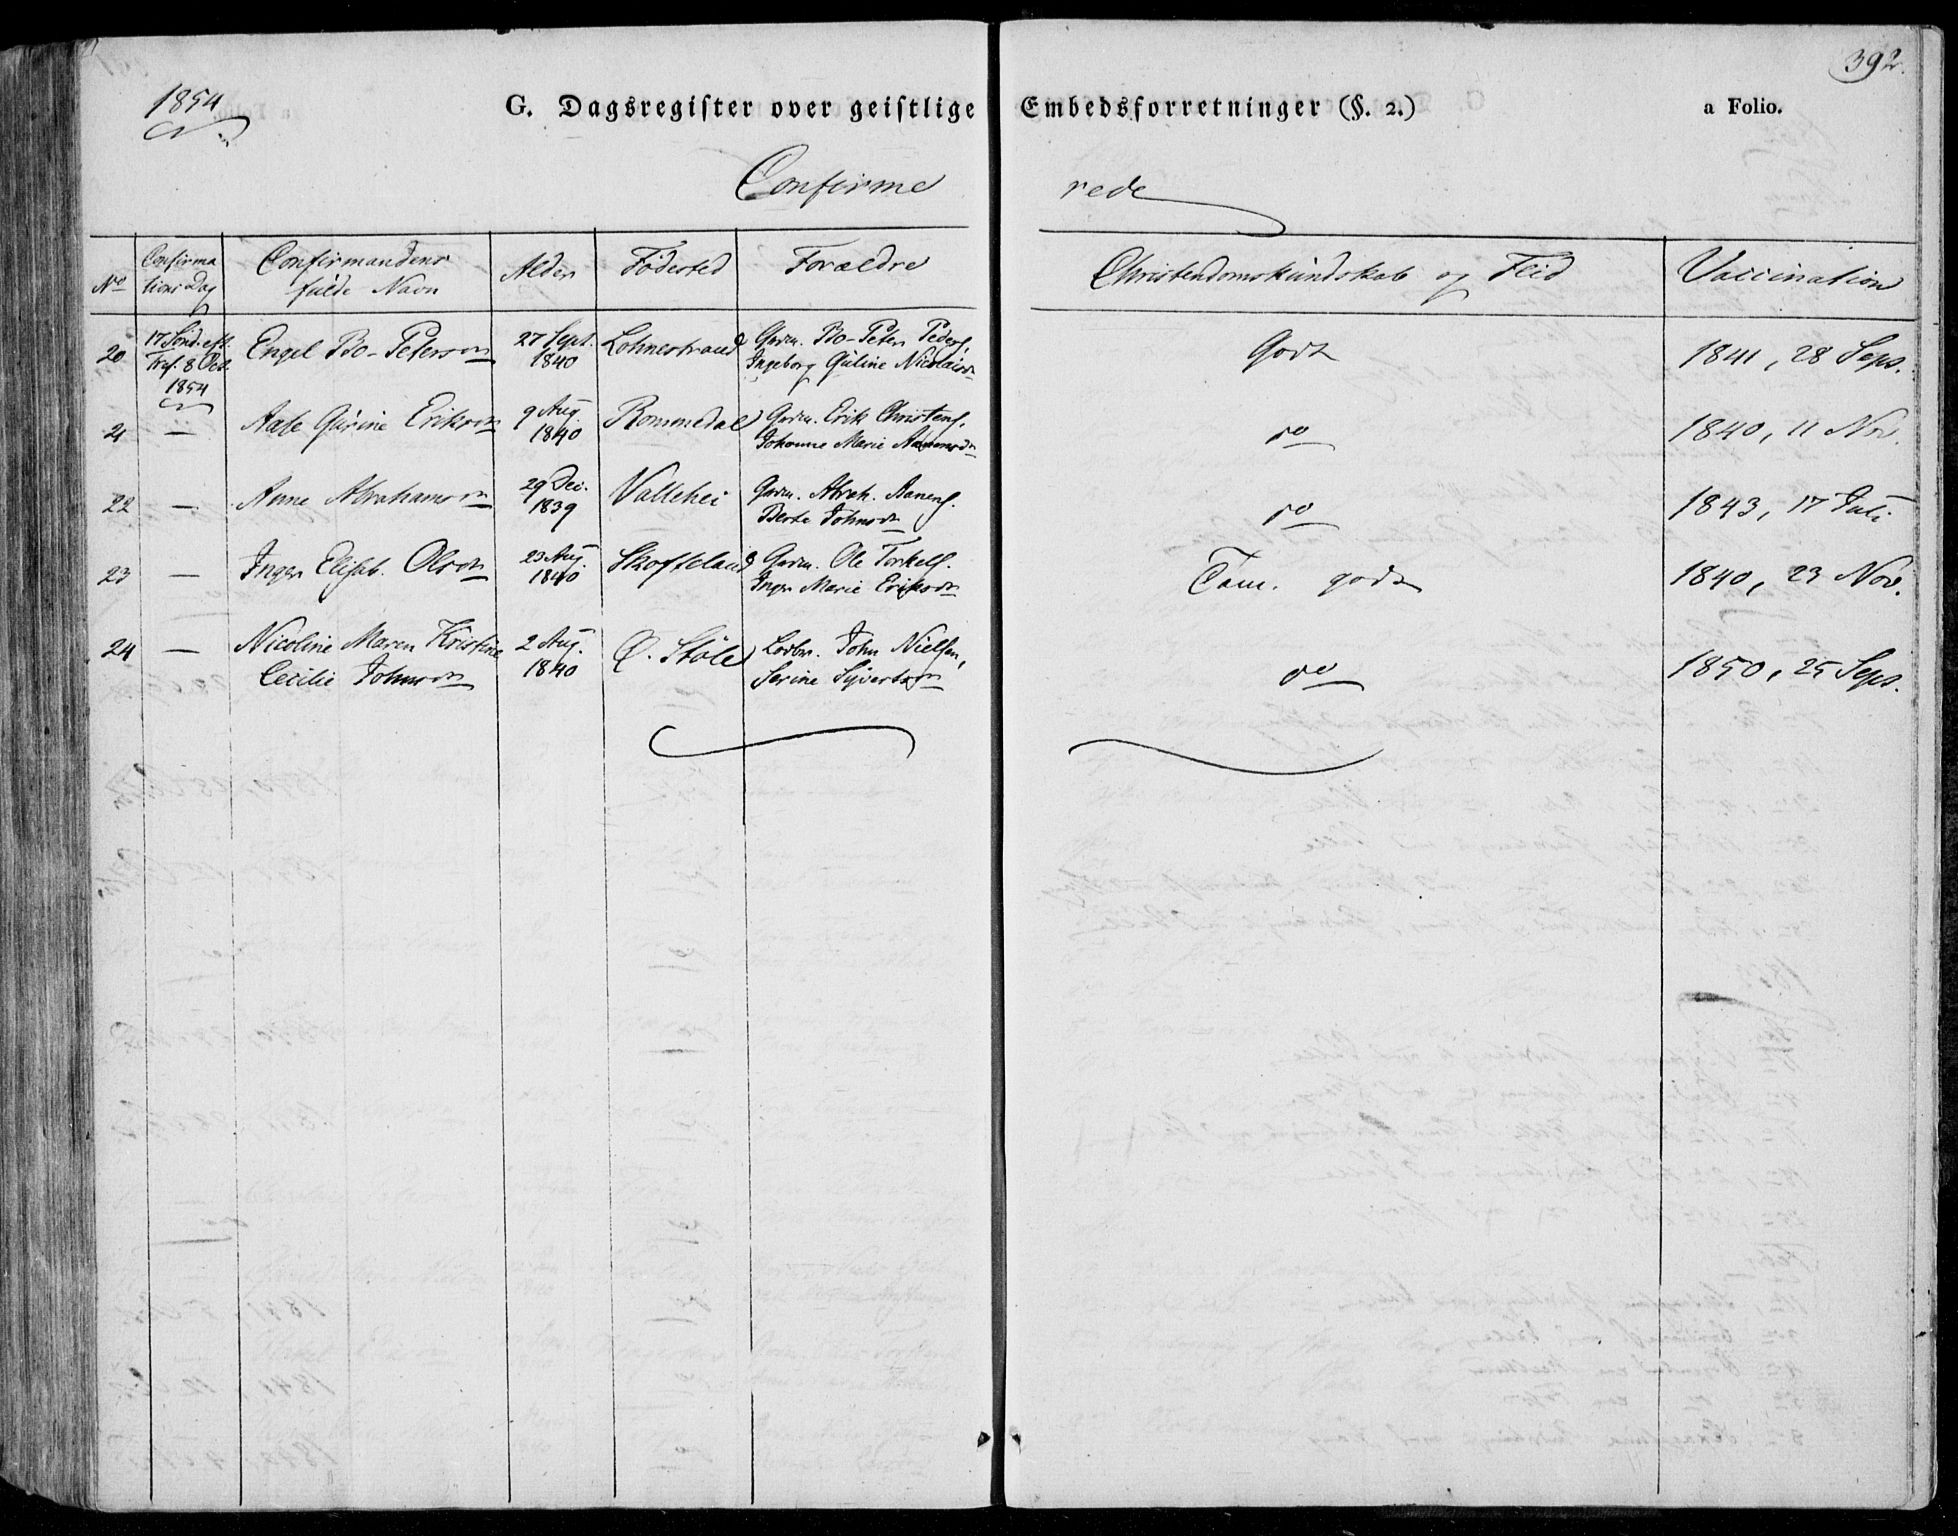 392.
1854
G. Dagsregister over geistlige Embedsforretninger (§. 2.) a Folio.
Confirmerede
No Confirmations Dag Confirmandens fulde Navn Alder Födested Forældre Christendomskundskab og Flid Vaccination
20 17 Sönd. eft. Tref. 8 Oct. 1854 Engel Bo-Petersdn 27 Sept. 1840 Lohnestrand Garm. Bo-Peter Peders. Ingeborg Guline Nicolaisdn Godt 1841, 28 Sept.
21 — Aase Gurine Eriksdn 9 Aug. 1840 Rommedal Garm. Erik Christens. Johanne Marie do 1840, 11 Nov.
22 — Anne Abrahamsdn 29 Dec. 1839 Vallehei Gaarm. Abrah. Aanens. Berte Johnsdn do 1843, 17 Juli
23 — Inger Elisab. Olsdn 23 Aug. 1840 Skofteland Gaarm. Ole Torkels. Inger Marie Eriksdn Tem. godt 1840, 23 Nov.
24 — Nicoline Maren Kristine Cecilie Johnsdn 2 Aug. 1840 Ö. Stöle John Nielsen, Serine Syvertsdn do 1850, 25 Sept.